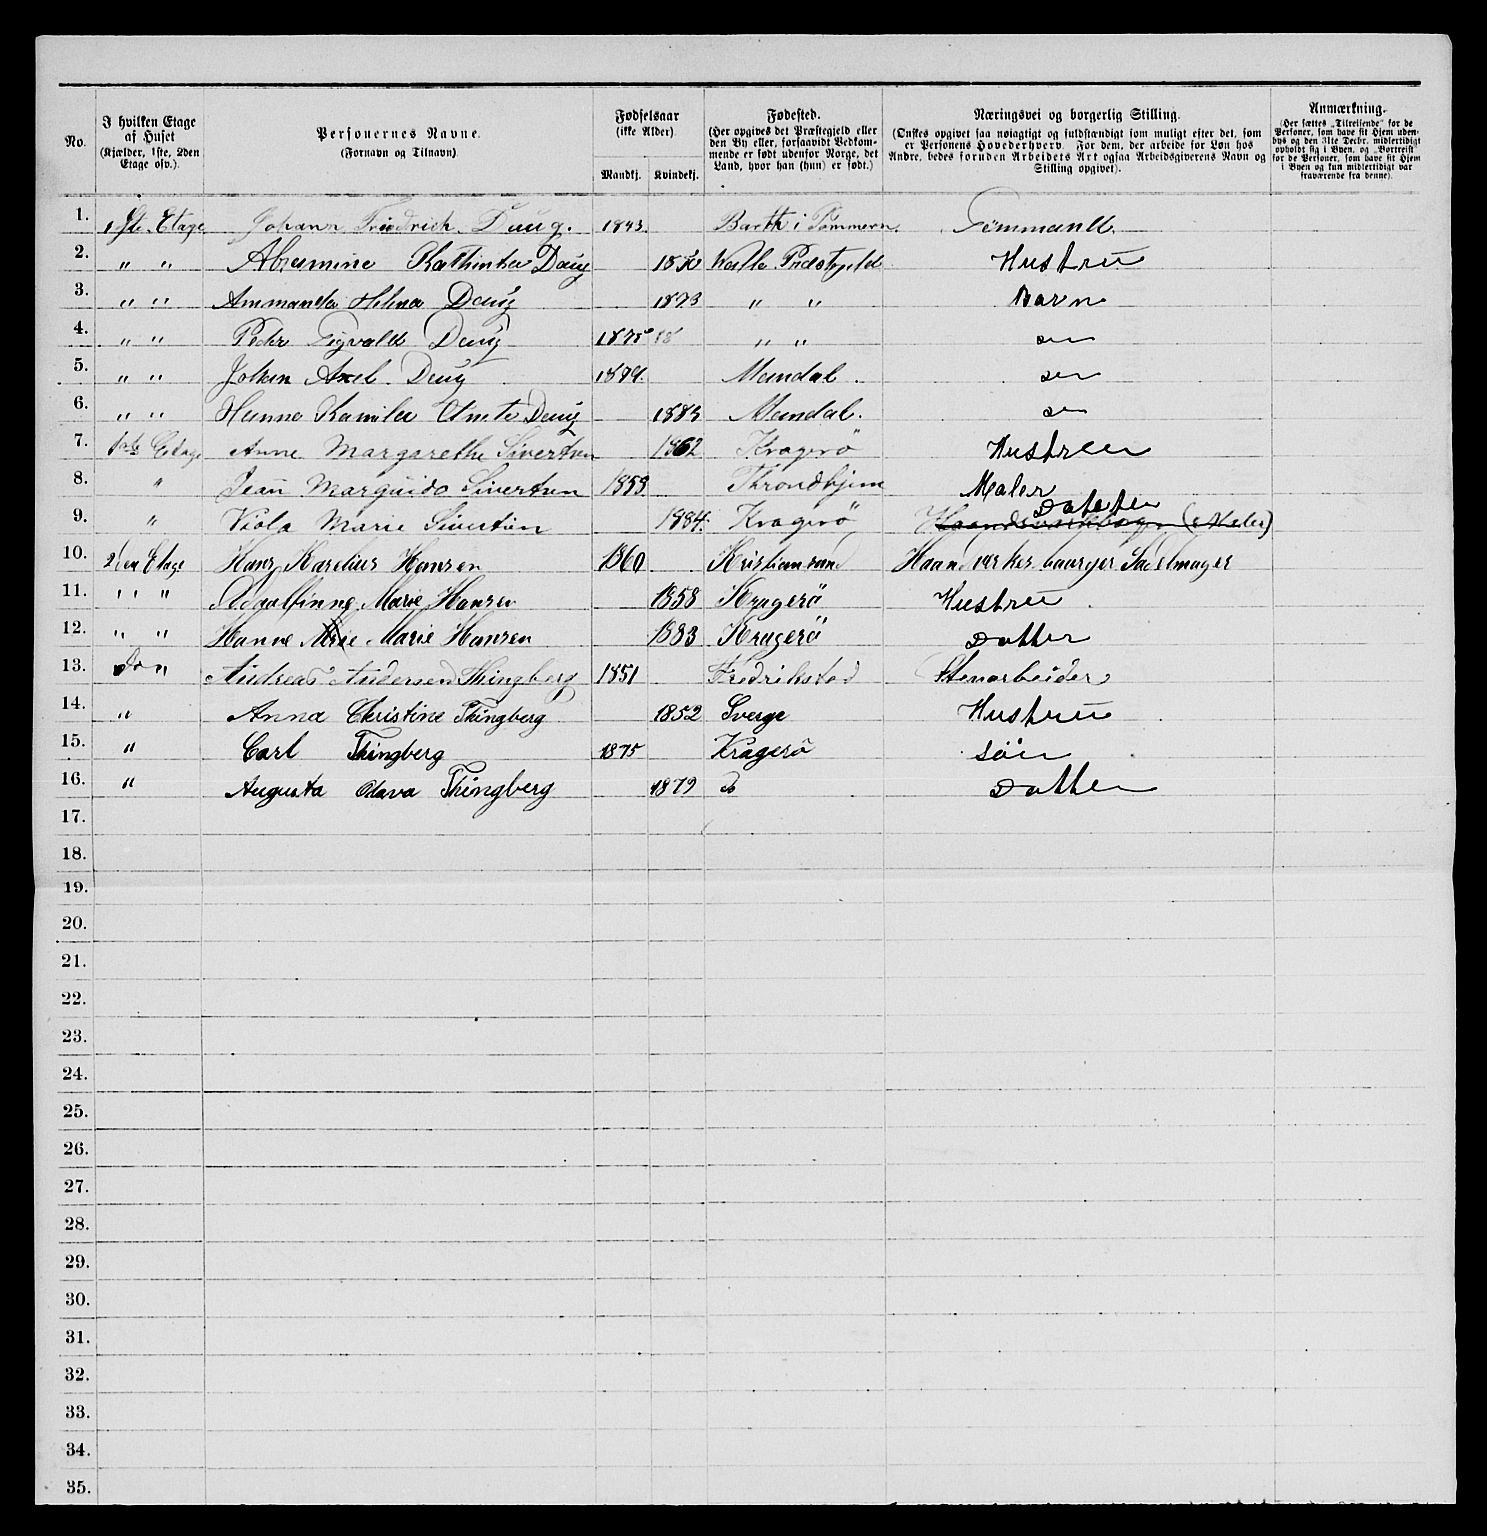 No.
I hvilken Etage af Huset (Kjælder, 1ste, 2den Etage osv.).
Personernes Navne. (Fornavn og Tilnavn)
Fødselsaar (ikke Alder)
Mandkj. Kvindekj.
Fødested. (Her opgives det Præstegjeld eller den By eller, forsaavidt Vedkommende er født udenfor Norge, det Land, hvor han (hun) er født.)
Næringsvei og borgerlig Stilling. (Ønskes opgivet saa nøiagtigt og fuldstændigt som muligt efter det, som er Personens Hovederhverv. For dem, der arbeide for Løn hos Andre, bedes foruden Arbeidets Art ogsaa Arbeidsgiverens Navn og Stilling opgivet).
Anmærkning. (Her sættes „Tilreisende“ for de Personer, som have sit Hjem udenbys og den 31te Decbr. midlertidigt opholdt sig i Byen, og „Bortreist“ for de Personer, som have sit Hjem i Byen og kun midlertidigt var fraværende fra denne).
1. 1ste Etage Johann Friedrich Daug. 1843. Barth i Pommern. Tømmand
2. " " Abramine Kathinka Daug Halle Præstegjeld Hustru
3. " " Ammanda Helma Daug 1873 " " Barn
4. " " Peder Sigvald Daug 1875 " "
5. " " Johan Axel Daug Mandal
6. " " Hanna Kamila Daug 1883 Mandal.
7. 1ste Etage Anne Margarethe Sivertsen 1862 Kragerö Hustru
8. " Jean Marguido Sivertsen 1853 Throndhjem Maler
9. " Viola Marie Sivertsen 1884. Kragerö Datter (Maler)
10. 2den Etage Hans Karelius Hansen 1860 Kristiansand Haandværksbaarger Sadelmager
11. " " Marie Hansen 1858 Kragerö Hustru
12. " " Hanne Marie Hansen 1883 Kragerö Datter
13. Do " Andreas Andersen Thingberg 1851 Fredrikstad Stenarbeider
14. " Anna Christine Thingberg 1852 Sverge Hustru
15. " Carl Thingberg 1875 Kragerö Sön
16. " Augusta Olava Thingberg 1879 Do Datter
17.
18.
19.
20.
21.
22.
23.
24.
25.
26.
27.
28.
29.
30.
31.
32.
33.
34.
35.